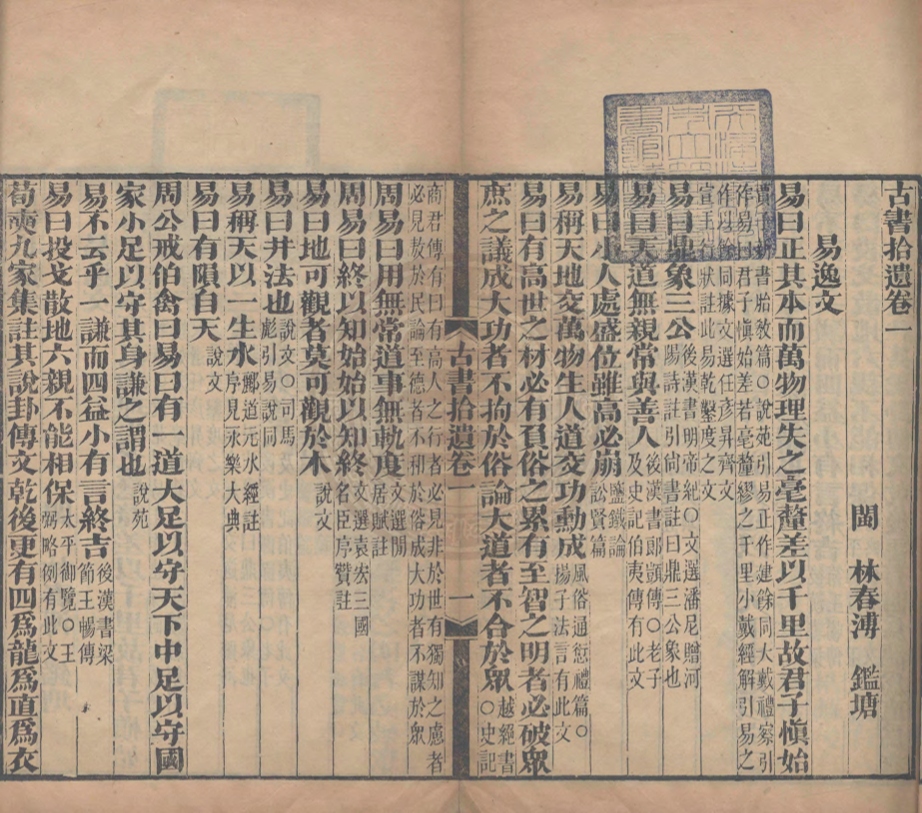 古書拾遺卷一
閩 林春溥 鑑塘
易逸文
易曰正其本而萬物理失之毫釐差以千里故君子愼始
書胎敎篇○說苑引易正作建餘同大戴禮察引
作易曰君子愼始差若毫釐繆之千里小戴經解引易之
作以餘同據文選任彥昇齊文
宣王行狀註此易乾鑿度之文
易曰鼎象三公後漢書明帝紀○文選潘尼贈河
陽詩註引尙書註曰鼎三公象也
易曰天道無親常與善人後漢書郎顗傳○老子
及史記伯夷傳有此文
易曰小人處盛位雖高必崩鹽鐵論
訟賢篇
易稱天地交萬物生人道交功勳成風俗通愆禮篇○
揚子法言有此文
易曰有高世之材必有負俗之累有至智之明者必破眾
庶之議成大功者不拘於俗論大道者不合於眾越絕書
○史記
商君傳有曰有高人之行者必見非於世有獨知之慮者
必見敖於民論至德者不和於俗成大功者不謀於眾
周易曰用無常道事無軌度文選閒
居賦註
周易曰終以知始始以知終文選袁宏三國
名臣序贊註
易曰地可觀者莫可觀於木說文
易曰井法也說文○司馬
彪引易說同
易稱天以一生水酈道元水經註
序見永樂大典
易曰有隕自天說文
周公戒伯禽曰易曰有一道大足以守天下中足以守國
家小足以守其身謙之謂也說苑
易不云乎一謙而四益小有言終吉後漢書梁
節王暢傳
易曰投戈散地六親不能相保太平御覽○王
弼略例有此文
荀爽九家集註其說卦傳文乾後更有四爲龍爲直爲衣
古書拾遺卷一
一